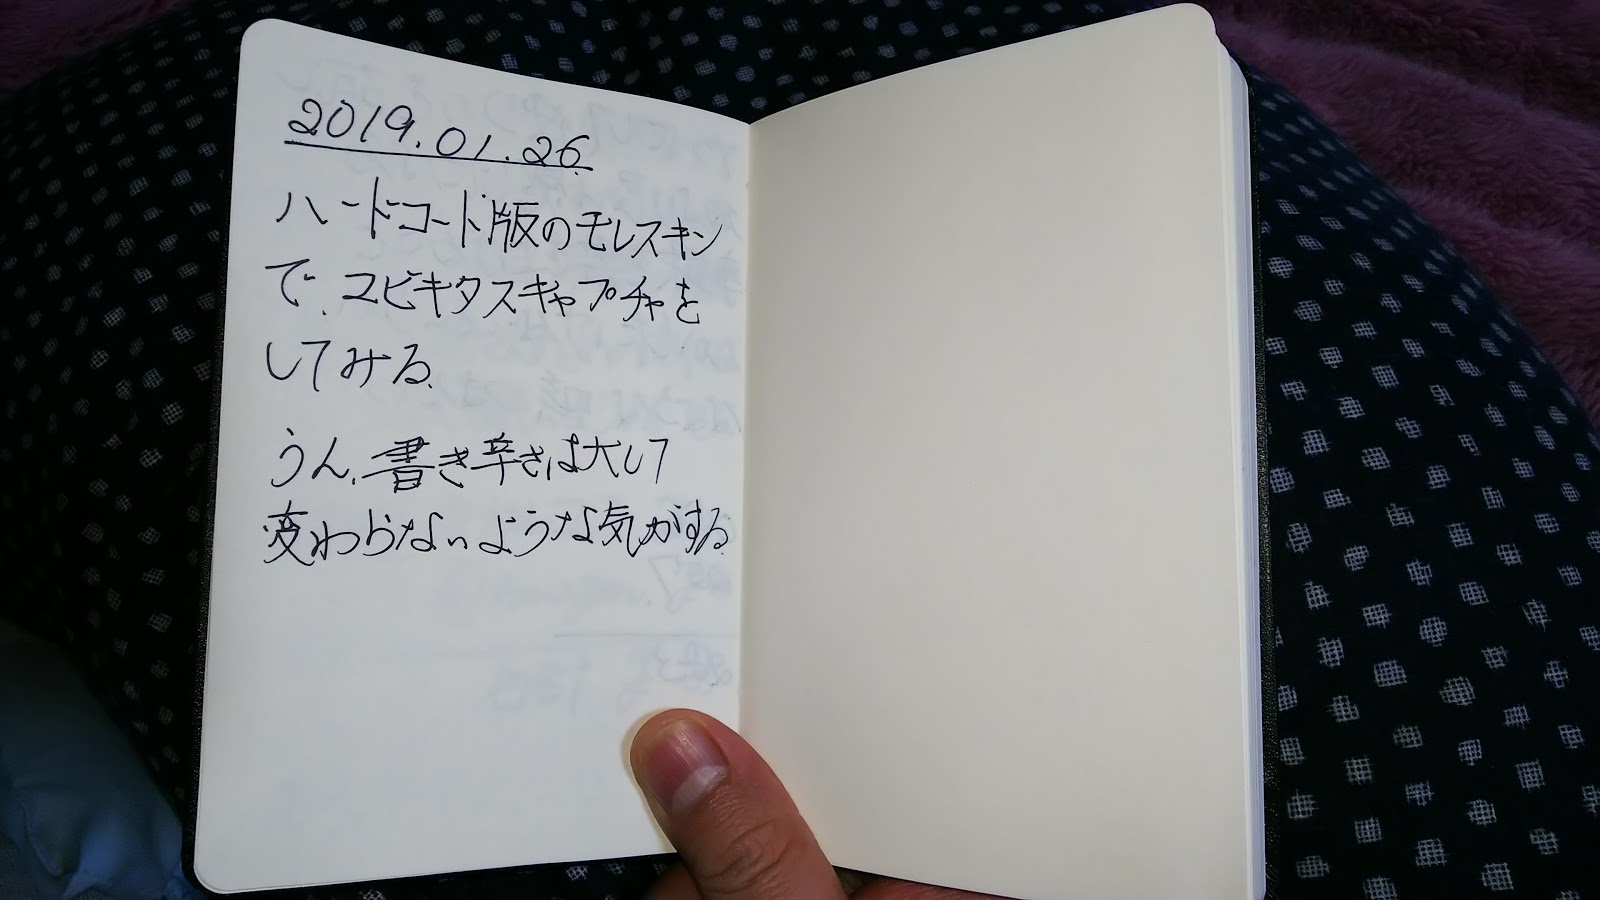 2019.01.26
ハードコード版のモレスキン
で、ユビキタスキャプチャを
してみる。
うん、書き辛さは大して
変わらないような気がする。